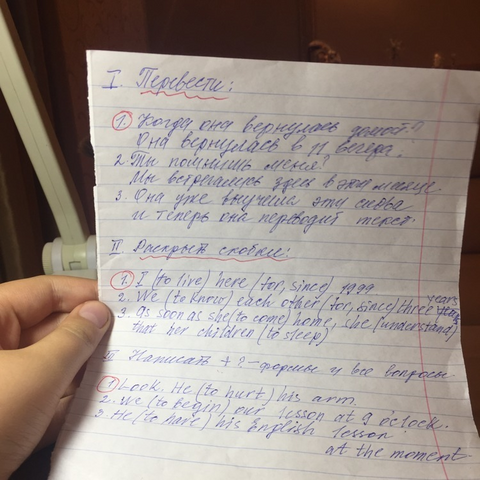 I. Перевести:
1. Когда она вернулась домой?
Она вернулась в 11 вечера.
2. Ты помнишь меня?
Мы встречались здесь в этом
3. Она уже выучила эти слова
и теперь она переводит текст.
II Раскрыть скобки:
1. I (to live) here (for, since) 1999
2. We (to know) each other (for, since) three years
3. As soon as she (to come) home, she (understand)
that her children (to sleep)
III Написать + ? – формы и все вопросы.
1 Look. He (to hurt) his arm.
2. We (to begin) our lesson at 9 oclock.
3. He (to have) his English lesson
at the moment